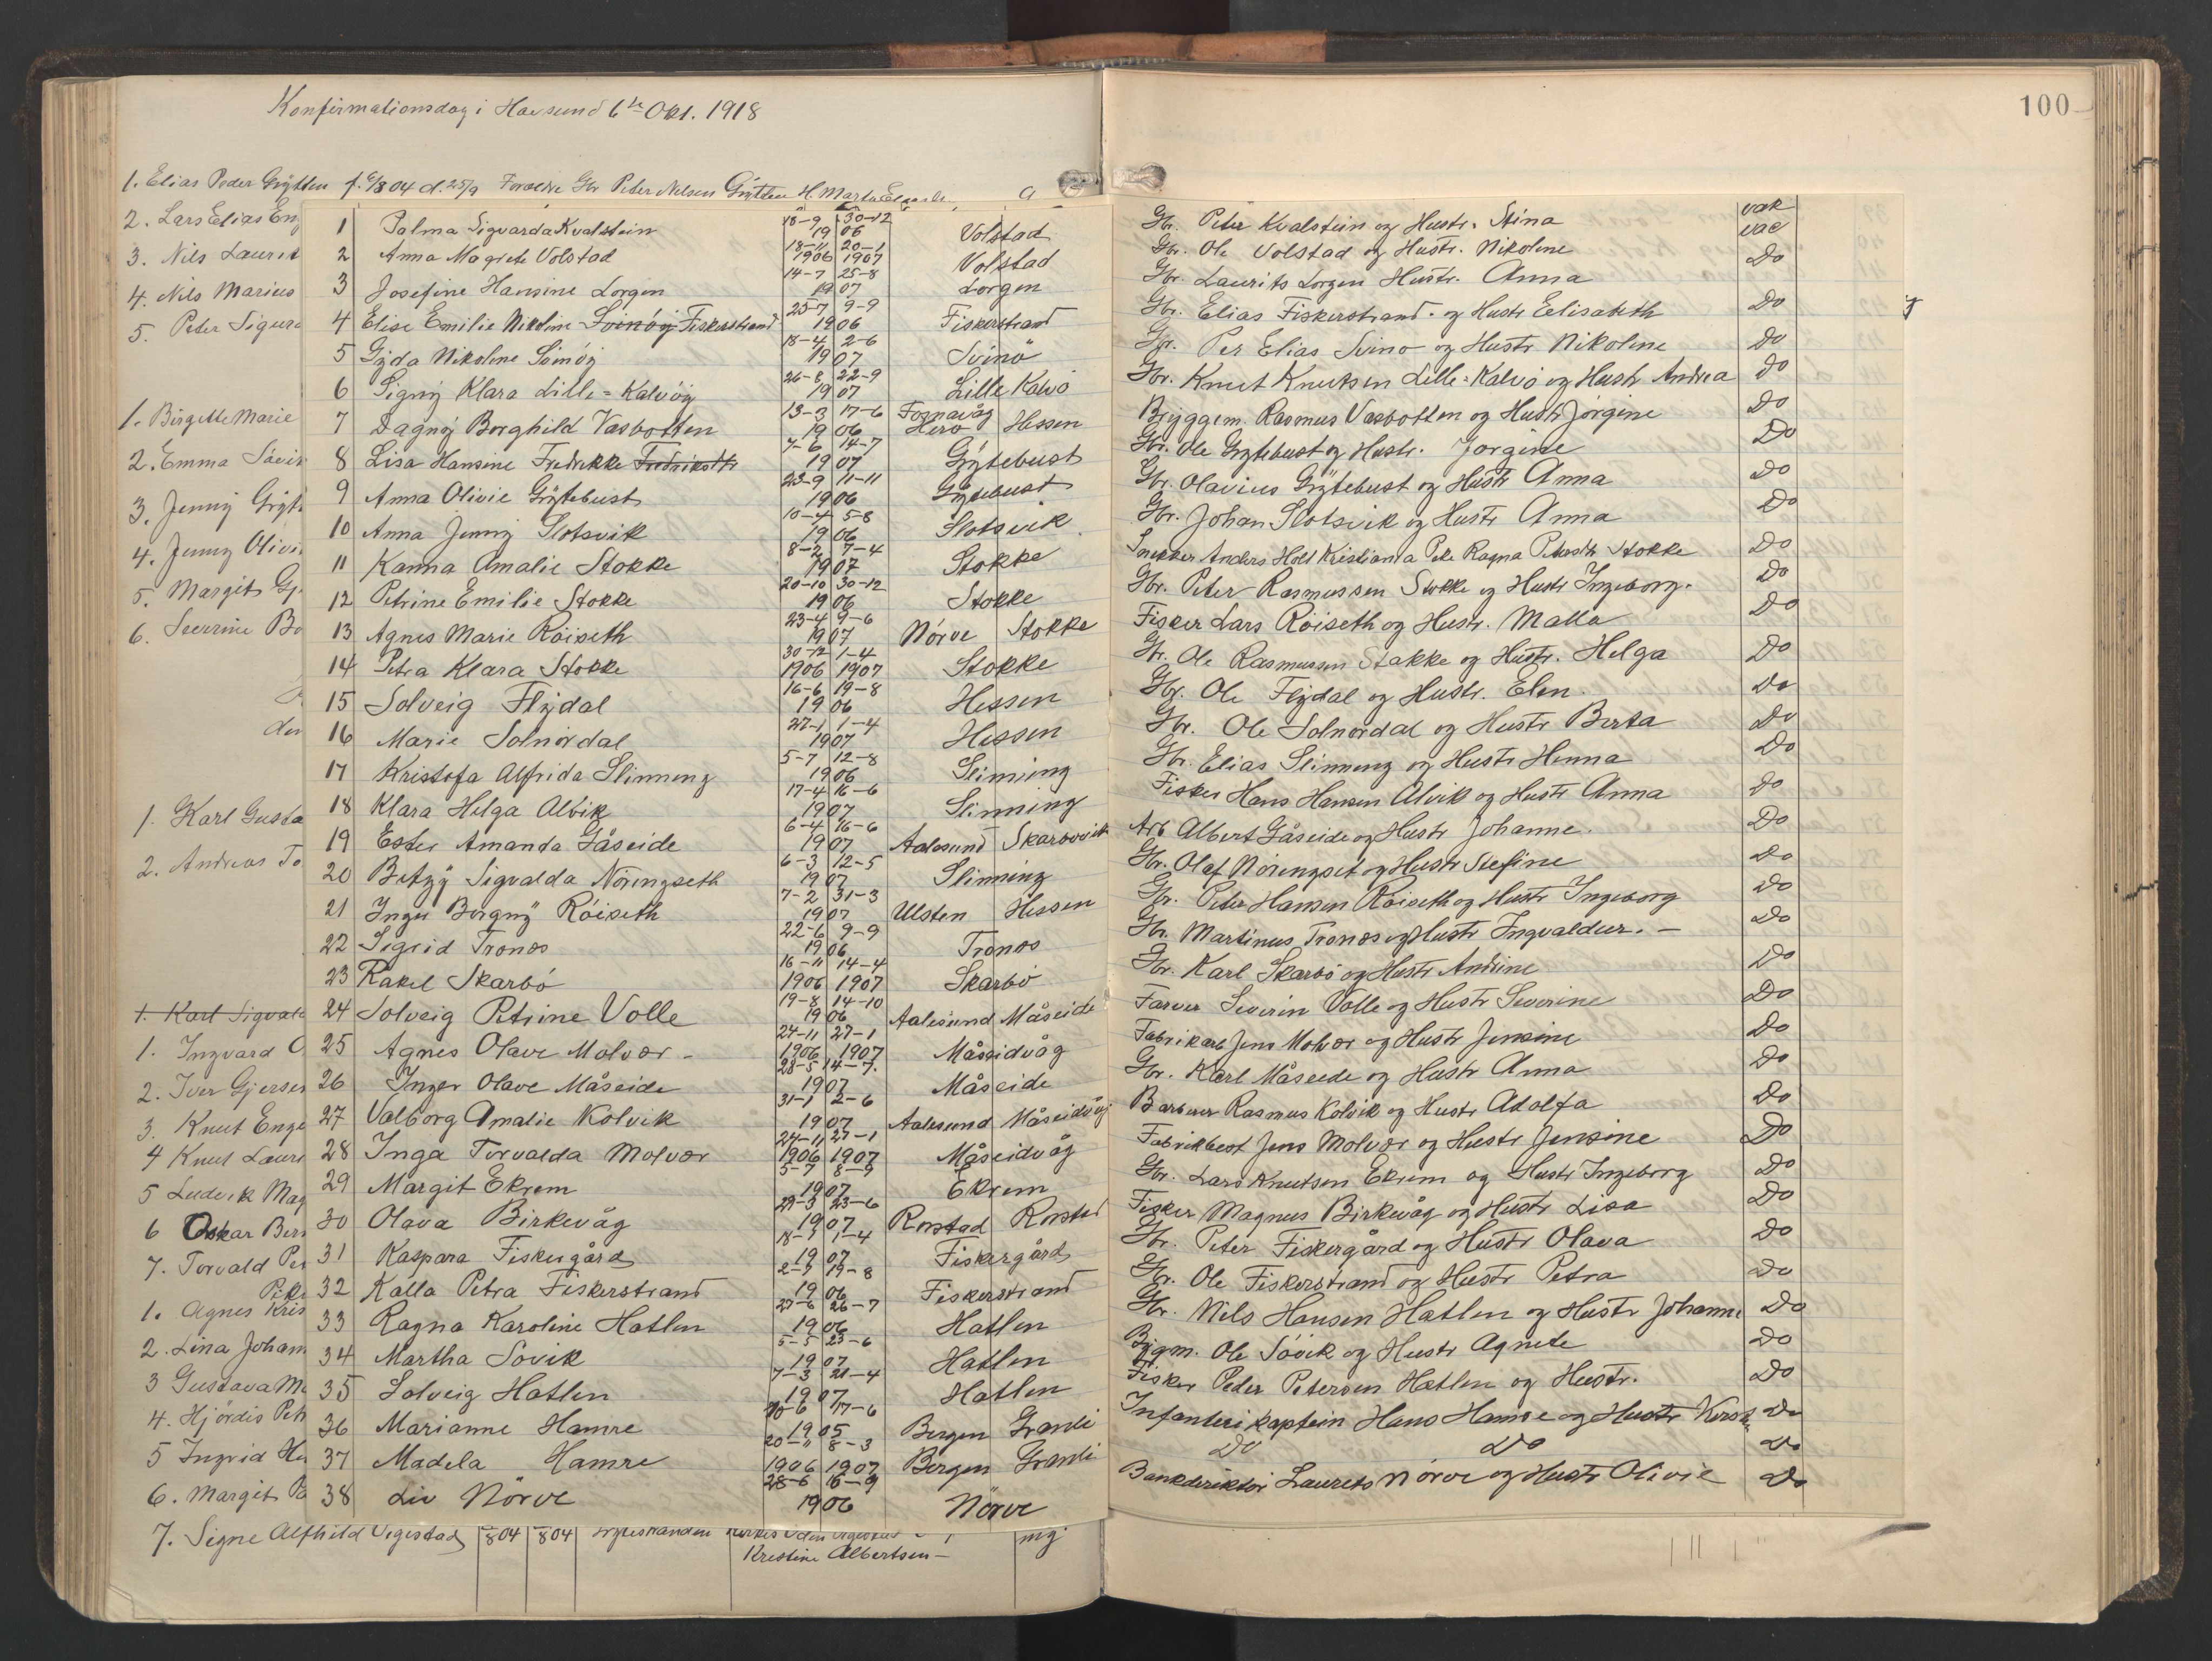 Konfirmationsdag i Havsund 6te Okt. 1918
100
1. Elias Peder Grytten f. 6/8 04 d. 25/9 Forældre Gbr Peter Nilsen Grytten H. Marta
2. Lars Elias Eng
3. Nils Laurit
4. Nils Marius
5. Peter Sigurd
1. Birgitte Marie
2. Emma Sövik
3. Jenny Gryt
4. Jenny Olivi
5. Margit Gj
6. Severine Bo
1. Karl Gusta
2. Andreas To
1. Karl Sigvald
1. Ingvard O
2. Iver Gjersen
3. Knut Enge
4 Knut Lauri
5 Ludvik Mag
6 Oskar Bern
7. Torvald Per
Pike
1. Agnes Kris
2. Lina Johan
3 Gustava Ma
4. Hjördis Petr
5 Ingrid He
6. Margit Pa
7. Signe Alfhild Vegestad 804 804
Kristine Albertsen — mg
1 Palma Sigvarda Kvalstein 18-9 30-12 1906 Volstad Gbr. Peter Kvalstein og Hustr. Stina vak
2 Anna Magrete Volstad 18-11 20-1 1906 1907 Volstad Gbr. Ole Volstad og Hustr. Nikoline vac
3 Josefine Hansine Lorgen 14-7 25-8 1907 Lorgen Gbr. Laurits Lorgen Hustr. Anna Do
4 Elise Emilie Nikoline Svinöy Fiskerstrand 25-7 9-9 1906 Fiskerstrand Gbr. Elias Fiskerstrand og Hustr Eelisabeth Do
5 Gyda Nikoline Svinöy 18-4 2-6 1907 Svinö Gbr. Per Elias Svino og Hustr Nikoline Do
6 Signy Klara Lille-Kalvöy 26-8 22-9 1907 Lille Kalvö Gbr. Knut Knutsen Lille-Kalvö og Hustr Andrea Do
7 Dagny Borghild Vasbotten 13-3 17-6 1906 Fosnavåg Herö Hessen Bryggem. Rasmus Vasbotten og Hustr Jörgine Do
8 Lisa Hansine Fredrikke Fredriksdtr 7-6 14-7 1907 Grytebust Gbr. Ole Grytebust og Hustr. Jorgine Do
9 Anna Olivie Grytebust 23-9 11-11 1906 Grytebust Gbr. Olavius Grytebust og Hustr Anna Do
10 Anna Jenny Slotsvik 10-4 5-8 1906 Slotsvik Gbr. Johan Slotsvik og Hustr Anna Do
11 Kanna Amalie Stokke 8-2 7-4 1907 Stokke Snekker Anders Holt Kristiania Pike Ragna Petersdtr Stokke Do
12 Petrine Emilie Stokke 20-10 30-12 1906 Stokke Gbr. Peter Rasmussen Stokke og Hustr Ingeborg. Do
13 Agnes Marie Röiseth 23-4 9-6 1907 Nörve Stokke Fisker Lars Röiseth og Hustr. Malla Do
14 Petra Klara Stokke 30-12 1-4 1906 1907 Stokke Gbr. Ole Rasmussen Stakke og Hustr. Helga Do
15 Solveig Flydal 16-6 19-8 1906 Hessen Gbr. Ole Flydal og Hustr. Elen. Do
16 Marie Solnördal 27-1 1-4 1907 Hessen Gbr. Ole Solnordal og Hustr Berta Do
17 Kristofa Alfrida Slinning 5-7 12-8 1906 Slinning Gbr. Elias Slinning og Hustr Henna Do
18 Klara Helga Alvik 17-4 16-6 1907 Slinning Fisker Hans Hansen Alvik og Hustr Anna Do
19 Ester Amanda Gåseide 6-4 16-6 1907 Aalesund Skarbövik Arb Albert Gåseide og Hustr Johanne. Do
20 Betzy Sigvalda Nöringseth 6-3 12-5 1907 Slinning Gbr. Olaf Nöringset og Hustr Stefine Do
21 Inger Borgny Röiseth 7-2 31-3 1907 Ulsten Hessen Gbr. Peter Hansen Röiseth og Hustr Ingeborg Do
22 Sigrid Tronæs 22-6 9-9 1906 Tronæs Gbr. Martinus Tronæs og Hustr Ingvaldur. — Do
23 Rakel Skarbö 16-11 14-4 1906 1907 Skarbö Gbr. Karl Skarbö og Hustr Andrine Do
24 Solveig Petrine Volle 19-8 14-10 1906 Aalesund Måseide Farver Severin Volle og Hustr Severine Do
25 Agnes Olave Molvær - 24-11 27-1 1906 1907 Måseidvåg Fabrikarb Jens Molvær og Hustr Jensine Do
26 Inger Olave Måseide 28-5 14-7. 1907 Måseide Gbr. Karl Måseide og Hustr Anna Do
27 Valborg Amalie Kolvik 31-1 2-6 1907 Aalesund Måseidvåg Barberer Rasmus Kolvik og Hustr Adolfa Do
28 Inga Torvalda Molvær 24-11 27-1 1906 1907 Måseidvåg Fabrikbest Jens Molvær og Hustr Jensine Do
29 Margit Ekrem 5-7 8-9 1907 Ekrem Gbr. Lars Knutsen Ekrem og Hustr Ingeborg Do
30 Olava Birkevåg 29-3 23-6 1907 Rorstad Rorstad Fisker Magnus Birkevåg og Hustr Lisa Do
31 Kaspara Fiskergård 1-4 1907 Fiskergård Gbr. Peter Fiskergård og Hustr Olava Do
32 Kalla Petra Fiskerstrand 19-8 1906 Fiskerstrand Gbr. Ole Fiskerstrand og Hustr Petra Do
33 Ragna Karoline Hatlen 27-6 26-7 1906 Hatlen Gbr. Nils Hansen Hatlen og Hustr Johanne Do
34 Martha Sovik 5-5 23-6 1907 Hatlen Bygm. Ole Sövik og Hustr Agnete Do
35 Solveig Hatlen 7-3 21-4 1907 Hatlen Fisker Peder Petersen Hatlen og Hustr. Do
36 Marianne Hamre 17-6 1905 Bergen Grandi Infanterikaptein Hans Hamre og Hustr Do
37 Madela Hamre 20-11 8-3 1906 1907 Bergen Grandi Do Do Do
38 Liv Nörve 28-6 16-9 1906 Nörve Bankderiktör Laurets Nörve og Hustr Olivie Do